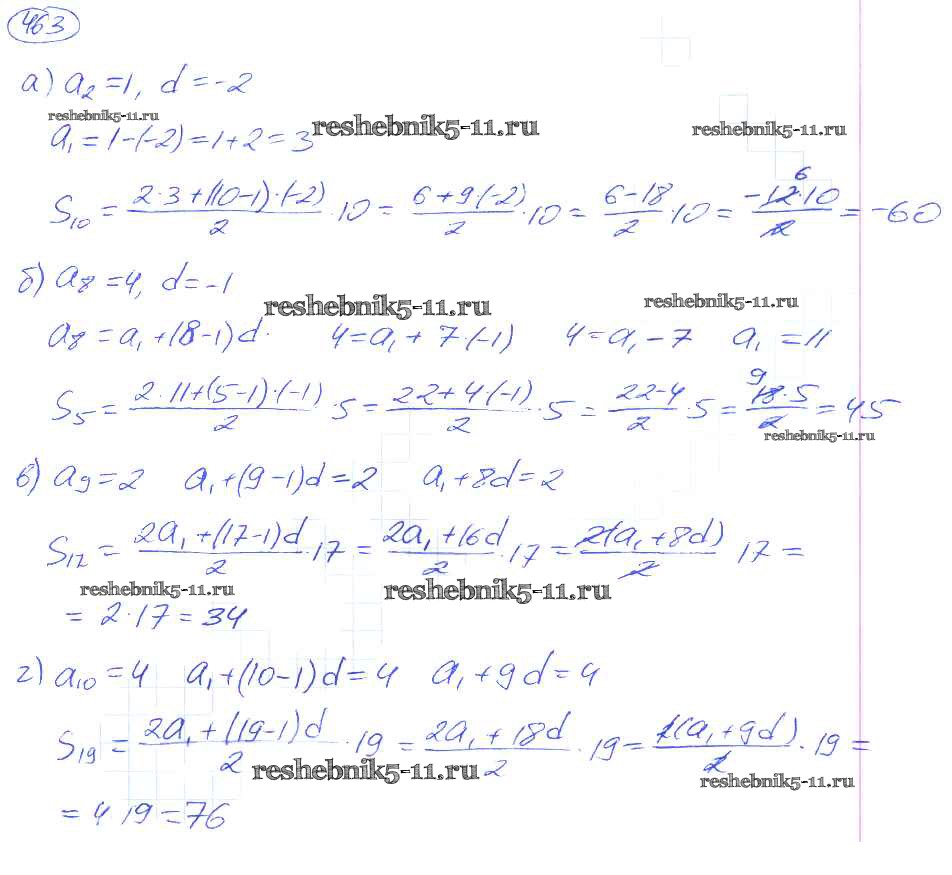 463
а) a₂ = 1, d = -2
reshebnik5-11.ru
a₁ = 1-(-2) = 1+2 = 3 reshebnik5-11.ru reshebnik5-11.ru
S₁₀ = (2·3+(10-1)·(-2))/2 · 10 = (6+9(-2))/2 · 10 = (6-18)/2 · 10 = (-12·10)/2 6 = -60
б) a₈ = 4, d = -1
reshebnik5-11.ru reshebnik5-11.ru
a₈ = a₁+(8-1)d. 4 = a₁ + 7(-1) 4 = a₁ - 7 a₁ = 11
S₅ = (2·11+(5-1)·(-1))/2 · 5 = (22+4(-1))/2 · 5 = (22-4)/2 · 5 = 9 (18·5)/2 = 45
reshebnik5-11.ru
в) a₉ = 2 a₁+(9-1)d = 2 a₁+8d = 2
S₁₇ = (2a₁+(17-1)d)/2 · 17 = (2a₁+16d)/2 · 17 = (2(a₁+8d))/2 17 =
reshebnik5-11.ru reshebnik5-11.ru
= 2·17 = 34
г) a₁₀ = 4 a₁+(10-1)d = 4 a₁+9d = 4
S₁₉ = (2a₁+(19-1)d)/2 · 19 = (2a₁+18d)/2 · 19 = (2(a₁+9d))/2 · 19 =
reshebnik5-11.ru reshebnik5-11.ru
= 4 19 = 76